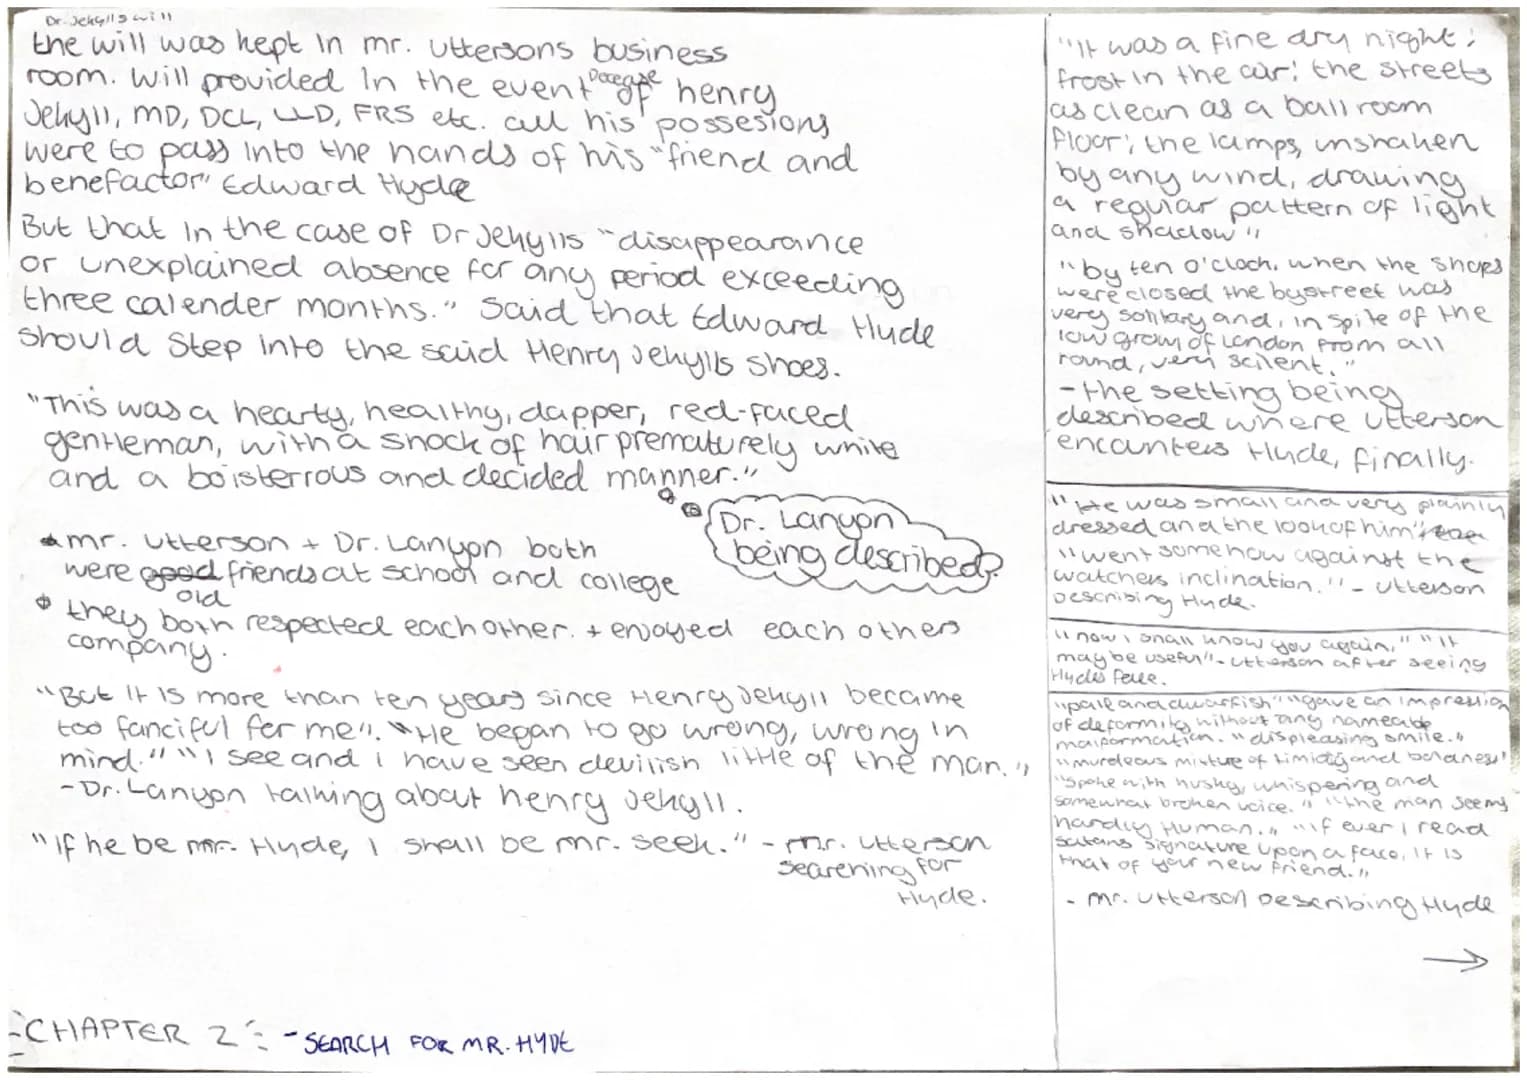 Dr. Jekylls will
the will was kept in mr. uttersons business
room. will provided in the event of Decease henry
Jekyll, MD, DCL, LLD, FRS etc. all his possesions
were to pass into the hands of his "friend and
benefactor" Edward Hyde
But that in the case of Dr Jekylls "disappearance
or unexplained absence for any period exceeding
three calender months." Said that Edward Hyde
should step into the said Henry Jekylls shoes.
"This was a hearty, healthy, dapper, red-faced
gentleman, with a shock of hair prematurely white
and a boisterrous and decided manner."
Dr. Lanyon
being described?
mr. utterson + Dr. Lanyon both
were good old friends at school and college
they both respected each other. + enjoyed each others
company.
"But it is more than ten years since Henry Jekyll became
too fanciful for me". "He began to go wrong, wrong in
mind." "I see and i have seen devilish little of the man."
- Dr. Lanyon talking about henry Jekyll.
"If he be mr. Hyde, i shall be mr. seek." - mr. utterson
searching for
Hyde.
CHAPTER 2 - SEARCH FOR MR. HYDE
"It was a fine dry night;
frost in the air; the streets
as clean as a ball room
floor; the lamps, unshaken
by any wind, drawing
a regular pattern of light
and shadow"
"by ten o'clock, when the shops
were closed the bystreet was
very solitary and, in spite of the
low growl of London from all
round, very scilent."
- the setting being
described where utterson
encounters Hyde, finally.
"He was small and very plainly
dressed and the look of him"
"went somehow against the
watchers inclination." - utterson
Describing Hyde.
"now i shall know you again," "It
may be useful" - utterson after seeing
Hydes face.
"pale and dwarfish" "gave an impression
of deformity without any nameable
malformation." "displeasing smile."
"murdeous mixture of timidity and boldness"
"spoke with husky, whispering and
somewhat broken voice." "the man seems
hardly human." "if ever i read
satans signature upon a face, it is
that of your new friend."
- mr. utterson Describing Hyde